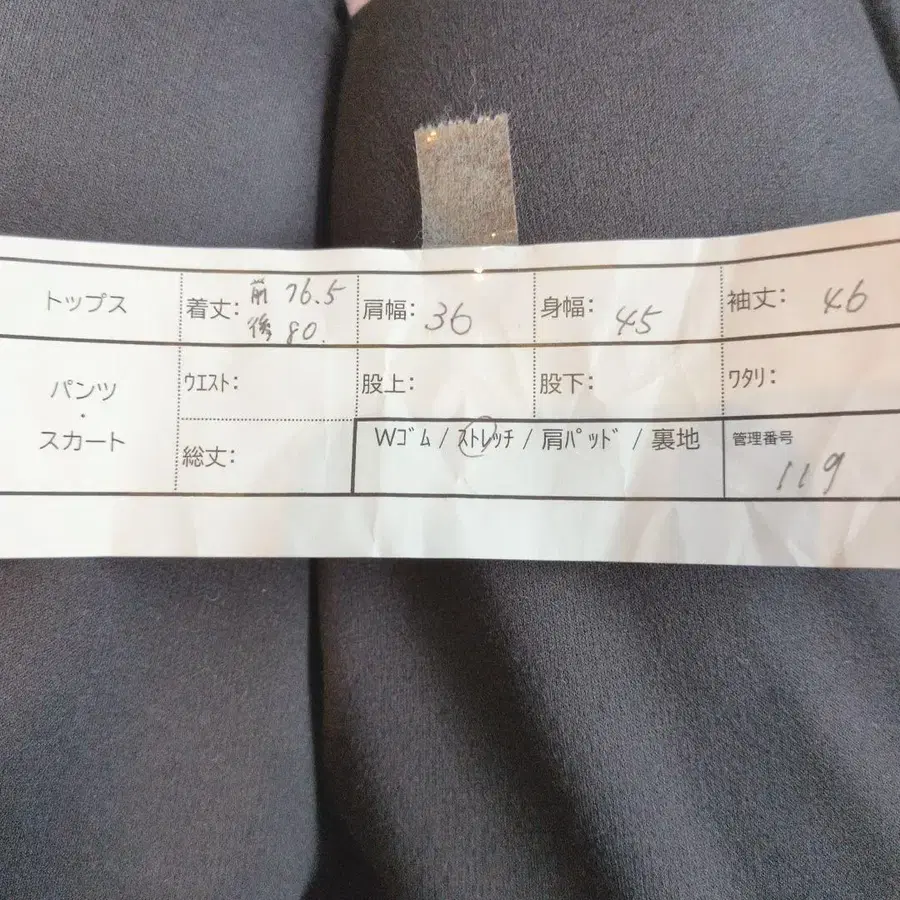 トップス 着丈: 前 76.5 肩幅: 36 身幅: 45 袖丈: 46
後 80.
パンツ ・ スカート ウエスト: 股上: 股下: ワタリ:
総丈: Wゴム / ストレッチ / 肩パッド / 裏地 管理番号
119